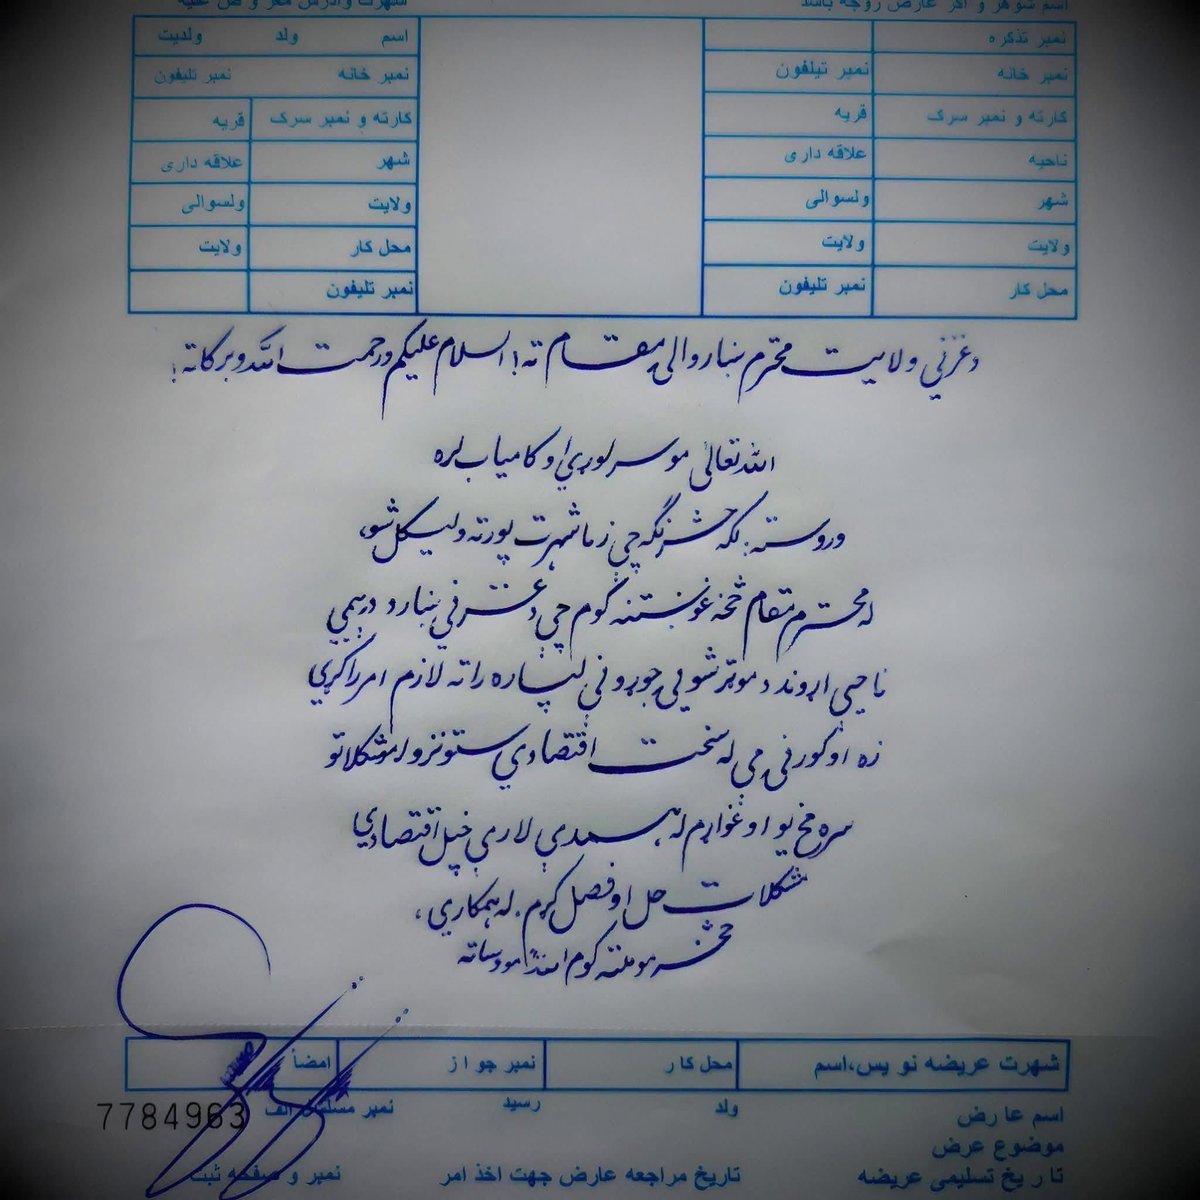 اسم شوهر و اگر عارض زوجه باشد
نمبر تذکره
نمبر خانه نمبر تیلفون
کارته و نمبر سرک قریه
ناحیه علاقه داری
شهر ولسوالی
ولایت ولایت
محل کار نمبر تلیفون
اسم ولد ولدیت
نمبر خانه نمبر تلیفون
کارته و نمبر سرک قریه
شهر علاقه داری
ولایت ولسوالی
محل کار ولایت
نمبر تلیفون
د غزني ولایت محترم ښاروالۍ مقام ته! السلام علیکم ورحمت الله وبرکاته!
الله تعالی مو سرلوړي او کامیاب لره
وروسته: لکه څرنګه چې زما شهرت پورته ولیکل شو،
له محترم مقام څخه غوښتنه کوم چې د غزني ښار د دریمې
ناحیې اړوند د موټر شویي جوړونې لپاره راته لازم امر راکړي
زه او کورنۍ مې له سخت اقتصادي ستونزو او مشکلاتو
سره مخ یو او غواړم له همدې لارې خپل اقتصادي
مشکلات حل او فصل کړم. له همکارۍ،
څخه مو مننه کوم الله مو وساته
شهرت عریضه نویس،اسم محل کار نمبر جواز امضأ
اسم عارض ولد رسید نمبر مسلسل الف 7784963
موضوع عرض
تاریخ تسلیمی عریضه تاریخ مراجعه عارض جهت اخذ امر نمبر و صفحه ثبت